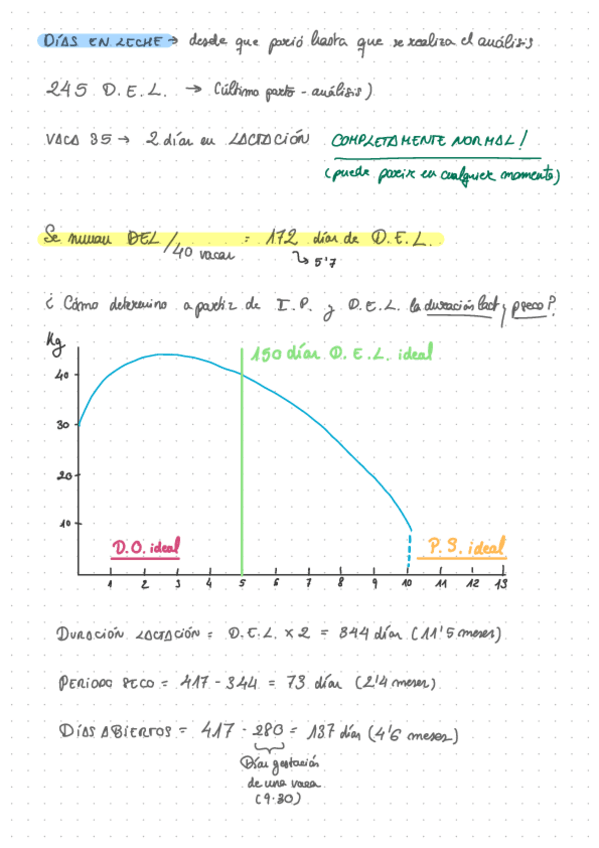 DÍAS EN LECHE → desde que parió hasta que se realiza el análisis
245 D.E.L. → (último parto - análisis)
VACA 35 → 2 días en LACTACIÓN COMPLETAMENTE NORMAL!
(puede parir en cualquier momento)
Se suman DEL/40 vacas = 172 días de D.E.L.
↳ 5'7
¿Cómo determino a partir de I.P. y D.E.L. la duración lact y p seco?
Kg
150 días D.E.L. ideal
40
30
20
10
D.O. ideal
P.S. ideal
1 2 3 4 5 6 7 8 9 10 11 12 13
DURACIÓN LACTACIÓN = D.E.L. x 2 = 344 días (11'5 meses)
PERIODO SECO = 417 - 344 = 73 días (2'4 meses)
DÍAS ABIERTOS = 417 - 280 = 137 días (4'6 meses)
Días gestación
de una vaca
(9·30)